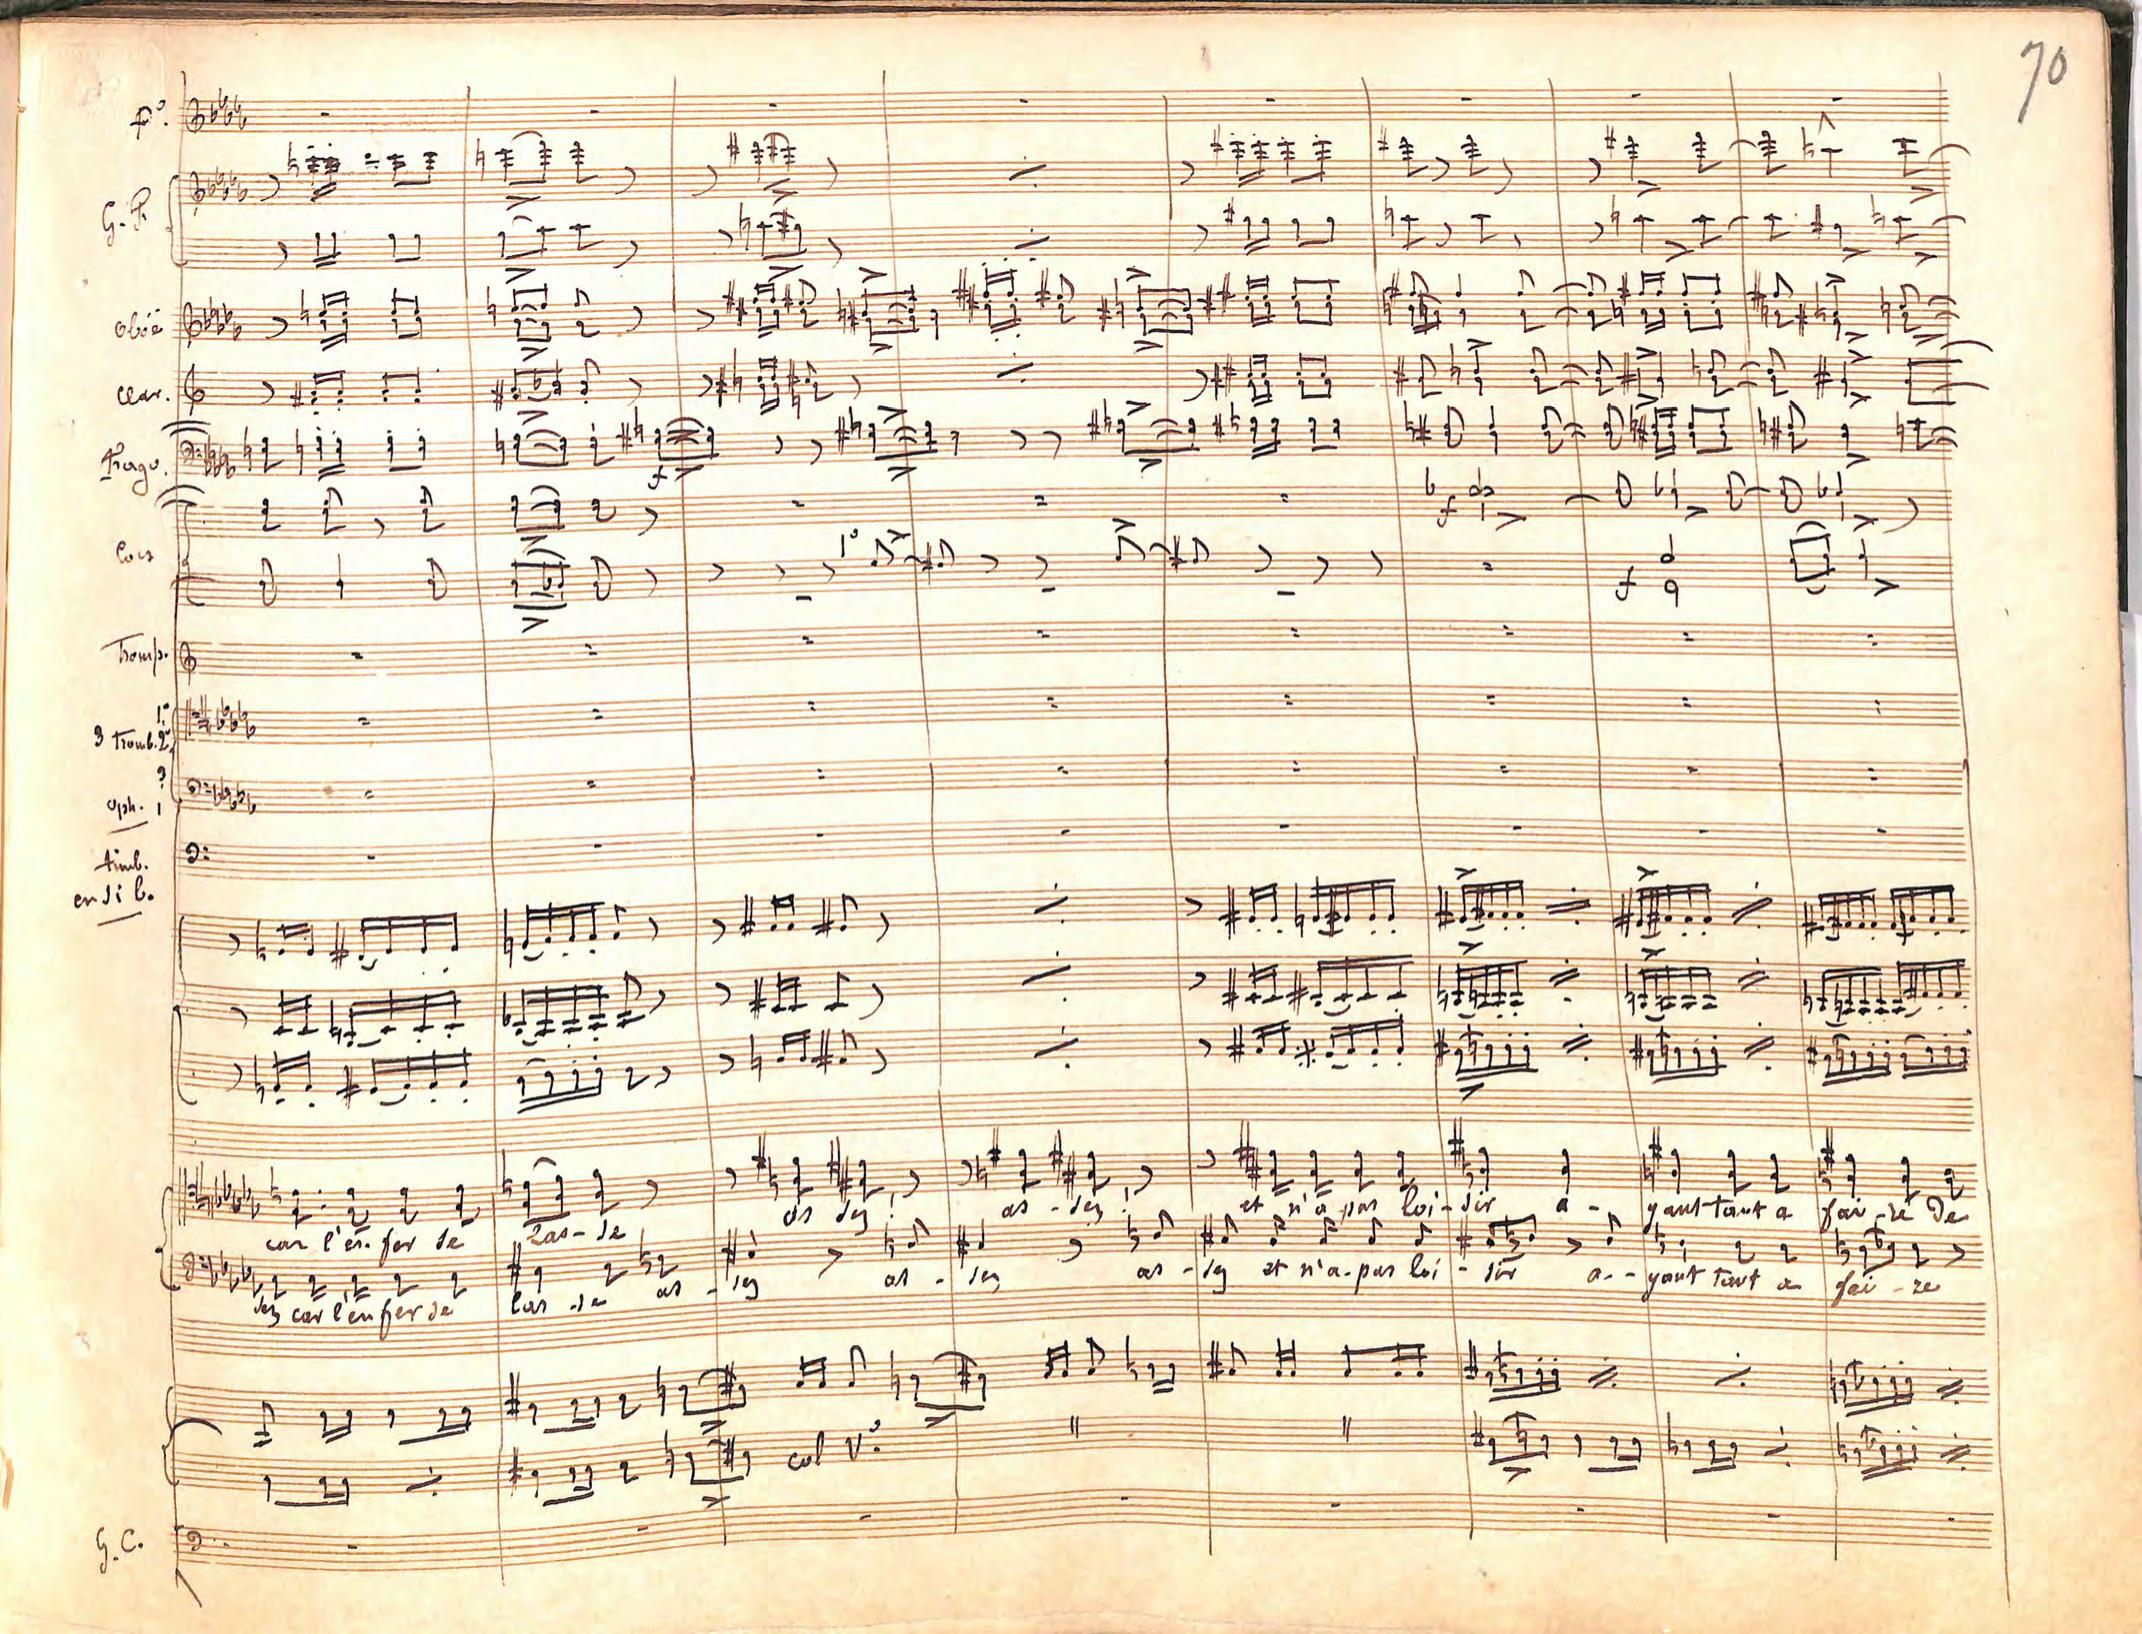 70
P°.
G. P.
Oboë
Clar.
Fago.
f
Cors
1°
f
f
Tromp.
1°
3 Tromb. 2°
3
Oph.
timb.
en Si b.
as sez! as - sez! et n'a pas loi - sir a - yant tant a fai - re De
car l'en - fer se las - se
sez car l'en fer se las - se as - sez as - sez as - sez et n'a - pas loi - sir a - yant tant a fai - re
col V°.
G. C.